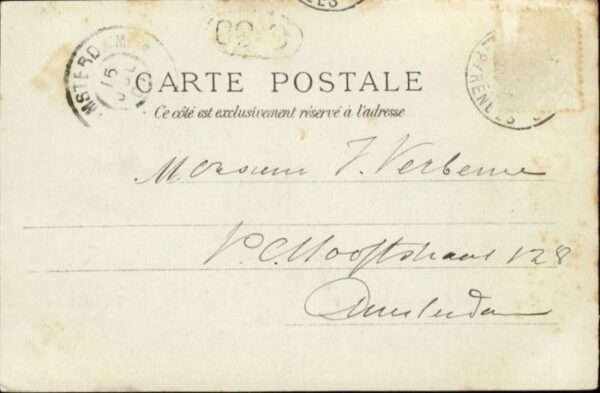 AMSTERDAM
15
CARTE POSTALE
Ce côté est exclusivement réservé à l'adresse
PYRÉNÉES
Monsieur J. Verbeme
P. C. Hooftstraat 128
Amsterdam